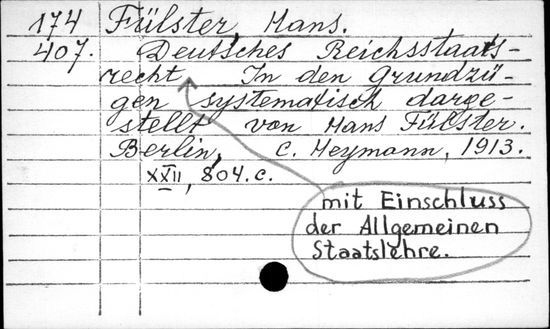 174 Fülster, Hans.
407. Deutsches Reichsstaats-
recht In den Grundzü-
gen systematisch darge-
stellt von Hans Fülster.
Berlin, C. Heymann, 1913.
XXII, 804.c.
mit Einschluss
der Allgemeinen
Staatslehre.